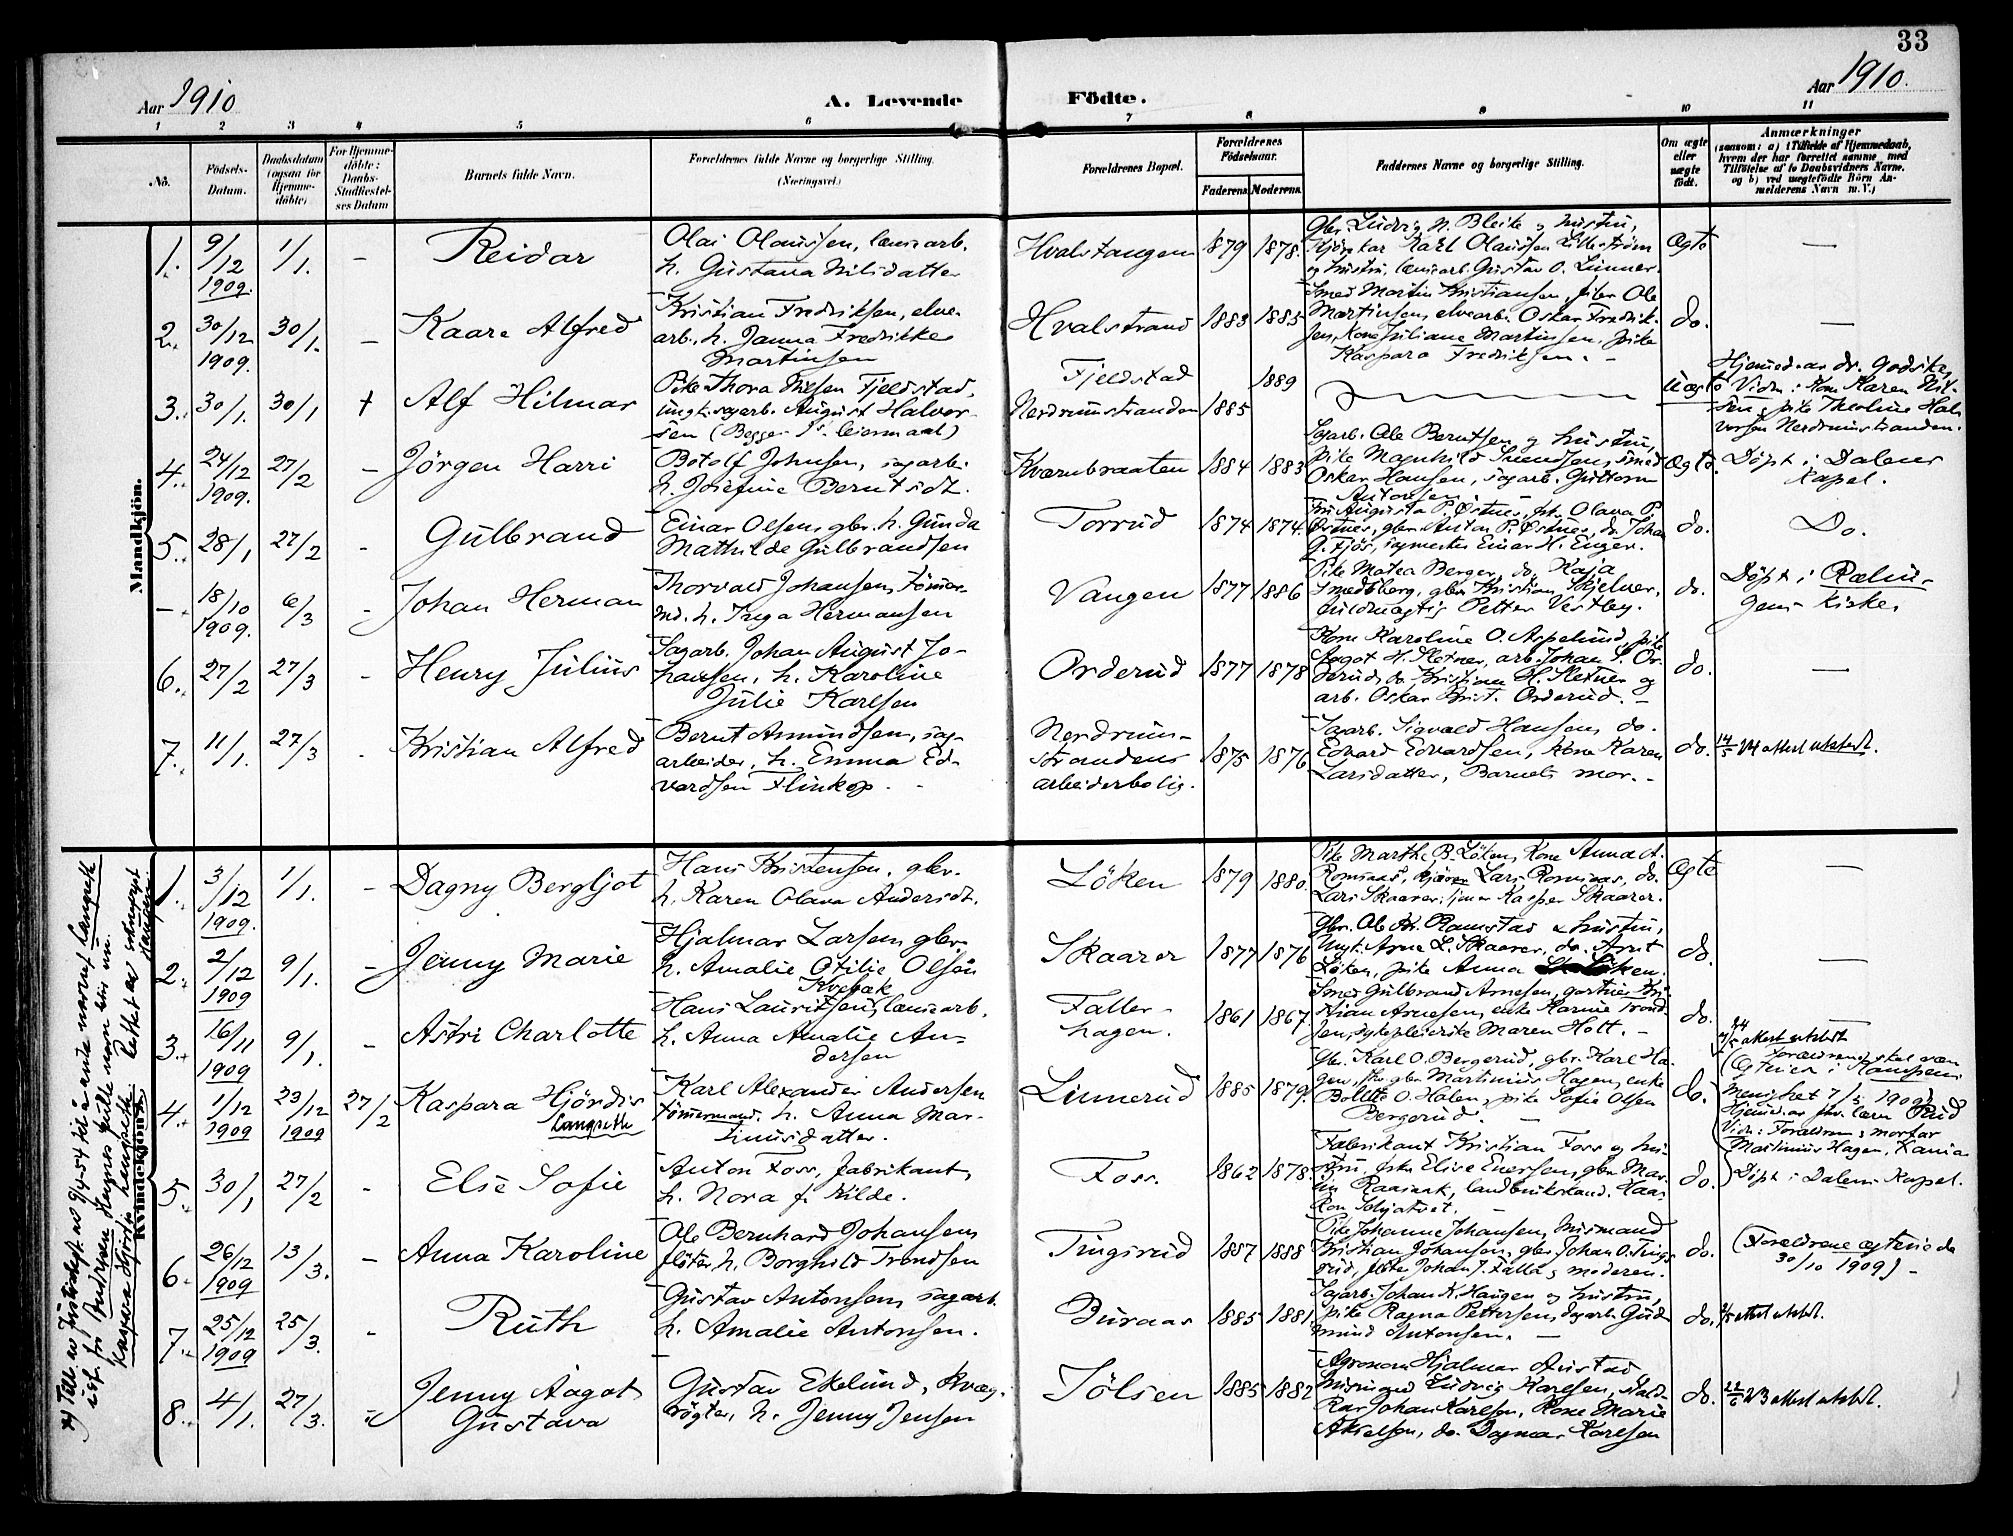 33
Aar 1910
A. Levende Födte.
Aar 1910.
1 2 3 4 5 6 7 8 9 10 11
No.
Födsels-Datum.
Daabsdatum (ogsaa for Hjemme-döbte)
For Hjemme-döbte: Daabs-Stadfæstel-ses Datum
Barnets fulde Navn.
Forældrenes fulde Navne og borgerlige Stilling. (Næringsvei.)
Forældrenes Bopæl.
Forældrenes Födselsaar.
Faderens. Moderens.
Faddernes Navne og borgerlige Stilling.
Om ægte eller uægte födt.
Anmærkninger
(saasom: a) i Tilfælde af Hjemmedaab,
hvem der har forrettet samme, med
Tilföielse af to Daabsvidners Navne,
og b) ved uægtefödte Börn An-
melderens Navn m. V.)
Mandkjön.
1. 9/12 1909. 1/1. - Reidar
Olai Olaussen,
h. Gustava Nilsdatter
Hvalstangen 1879 1878.
Gbr. Ludvig N. Bleike og hustru,
Karl Olaussen Lillestrøm
og hustru, Gustav O. Linner.
Ægte —
2. 30/12 1909. 30/1. - Kaare Alfred
Kristian Fredriksen, elve-
arb., h. Janna Fredrikke
Martinsen
Hvalstrand 1883 1885
Smed Martin Kristiansen, Ole
Martinsen, elvearb. Oskar Fredrik-
sen, Kone Juliane Martinsen, pike
Kaspara Fredriksen. -
do. —
3. 30/1. 30/1 + Alf Hilmar
Pike Thora Nilsen Fjeldstad,
ungk. sagarb. August Halvor-
sen (Begges 1ste leiermaal)
Fjeldstad 1889
Nerdrumstranden 1885
Uægte
Hjemmed. av dr. Godske,
Vidn.: Kone Karen Nil-
sen, pike Theoline Hal-
vorsen Nerdrumstranden.
4. 24/12 1909. 27/2 - Jörgen Harri
Botolf Johnsen, sagarb.
h. Josefine Berntsdt.
Kværnbraaten 1884 1883
Sagarb. Ole Berntsen og hustru,
pike Magnhild Svendsen, smed
Oskar Hansen, sagarb. Guttorm
Antonsen. -
Ægte. Döpt i Dalens
Kapel.
5. 28/1 27/2 - Gulbrand
Einar Olsen, gbr. h. Gunda
Mathilde Gulbrandsen
Torrud 1874 1874.
Fru Augusta P. Østnes, frk. Olava P.
Østnes, gbr. Anton P. Østnes, do. Johan
G. Fjös, sagmester Einar H. Enger.
do. Do.
- 18/10 1909. 6/3 - Johan Herman
Thorvald Johansen, Tömmer-
md. h. Inga Hermansen
Vangen 1877 1886
Pike Matea Berger, do. Kaja
Smedsberg, gbr. Kristian Skjelver,
fuldmægtig Petter Vestby.
do. Döpt i Rælin-
gens kirke.
6. 27/2 27/3 - Henry Julius
Sagarb. Johan August Jo-
hansen, h. Karoline
Julie Karlsen
Orderud 1877 1878
Kone Karoline O. Aspelund, pike
Aagot H. Sletner, arb. Johan S. Or-
derud, do. Kristian H. Sletner og
arb. Oskar Krist. Orderud. -
do. —
7. 11/1. 27/3 - Kristian Alfred
Bernt Amundsen, sag-
arbeider, h. Emma Ed-
vardsen Flinkop. -
Nerdrum-
strandens
arbeiderbolig. 1875 1876
Sagarb. Sigvald Hansen, do.
Edvard Edvardsen, Kone Karen
Larsdatter, Barnets mor. -
do. 14/5 14 attest utstedt.
Kvindekjön.
1. 3/12 1909. 1/1. - Dagny Bergljot
Hans Kristensen, gbr.
h. Karen Olava Andersdt.
Löken 1879 1880.
Pike Marthe B. Löken, Kone Anna A.
Romsaas, Lars Romsaas, do.
Lars Skaarer, Kasper Skaarer.
Ægte —
2. 2/12 1909 9/1. - Jenny Marie
Hjalmar Larsen, gbr.
h. Amalie Otilie Olsen
Kvebæk
Skaarer 1877 1876
Gbr. Ole Kr. Ramstad & hustru,
Ungk. Arne L. Skaarer, do. Arnt
Löken, pike Anna Löken.
do. —
3. 16/11 1909 9/1. - Astri Charlotte
Hans Lauritsen,
h. Anna Amalie An-
dersen
Faller-
hagen. 1861 1867
Smed Gulbrand Arnesen, gartner Kri-
stian Arnesen, enke Karine Trond-
sen, sykepleierske Maren Holt. -
do. —
4. 1/12 1909 23/12 1909 27/2 Kaspara Hjördis
Langseth
Karl Alexander Andersen
tömmermand. h. Anna Mar-
tinusdatter.
Linnerud 1885 1879.
Gbr. Karl O. Bergerud, gbr. Karl Ha-
gen, gbr. Martinius Hagen, enke
Bolette O. Halen, pike Sofie Olsen
Bergerud. -
do.
attest utstedt
(Forældrene skal være
egteviet i
menighet 7/5 1909)
Hjemmed. av Rud
Vidn: Forældrene, morfar
Martinius Hagen,
5. 30/1 27/2 - Else Sofie
Anton Foss, fabrikant,
h. Nora f. Kilde.
Foss. 1862 1878.
Fabrikant Kristian Foss og hu-
stru, frk. Elise Evensen, gbr. Mar-
tin, landbrukskand. Haa-
kon
do. Döpt i Dalens Kapel.
6. 26/12 1909 13/3. - Anna Karoline
Ole Bernhard Johansen,
flöter, h. Borghild Trondsen
Tingsrud 1887 1888
Pike Johanne Johansen, Husmand
Kristian Johansen, gbr. Johan O. Tings-
rud, flöter Johan J. Falla, moderen.
do. (Forældrene egteviede
30/10 1909) -
7. 25/12 1909 25/3. - Ruth
Gustav Antonsen, sagarb.
h. Amalie Antonsen.
Buraas 1885 1881.
Sagarb. Johan K. Haugen og hustru,
pike Ragna Pettersen, sagarb. Gud-
mund Antonsen. -
do. attest utstedt.
8. 4/1. 27/3. Jenny Aagot
Gustava
Gustav Ekelund, Kvæg-
rögter, h. Jenny Jensen
Sölsen 1885 1882
Agronom Hjalmar Austad
Husmand Ludvig Karlsen, Stald-
kar Johan Karlsen, Kone Marie
Akselsen, do. Dagmar Karlsen
do. 22/6 43 attest utstedt.
*) Till. av Justisdept. av 9/4-54 til å anta navnet Langseth
ist. for Andersen. Hennes fulle navn blir nu:
Kaspara Hjördis Langseth. Rettet av sokneprest
Haugen.